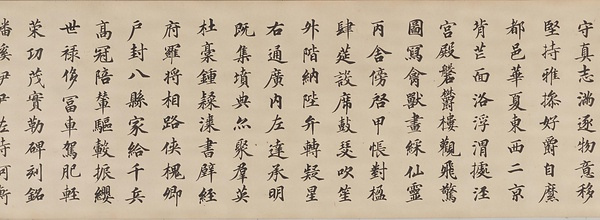 守真志滿逐物意移
堅持雅操好爵自縻
都邑華夏東西二京
背芒面洛浮渭據涇
宮殿磐鬱樓觀飛驚
圖寫禽獸畫綵仙靈
丙舍傍啓甲帳對楹
肆筵設席鼓瑟吹笙
升階納陛弁轉疑星
右通廣內左達承明
既集墳典亦聚群英
杜稾鍾隸漆書壁經
府羅將相路俠槐卿
戶封八縣家給千兵
高冠陪輦驅轂振纓
世祿侈富車駕肥輕
策功茂實勒碑刻銘
磻溪伊尹佐時阿衡